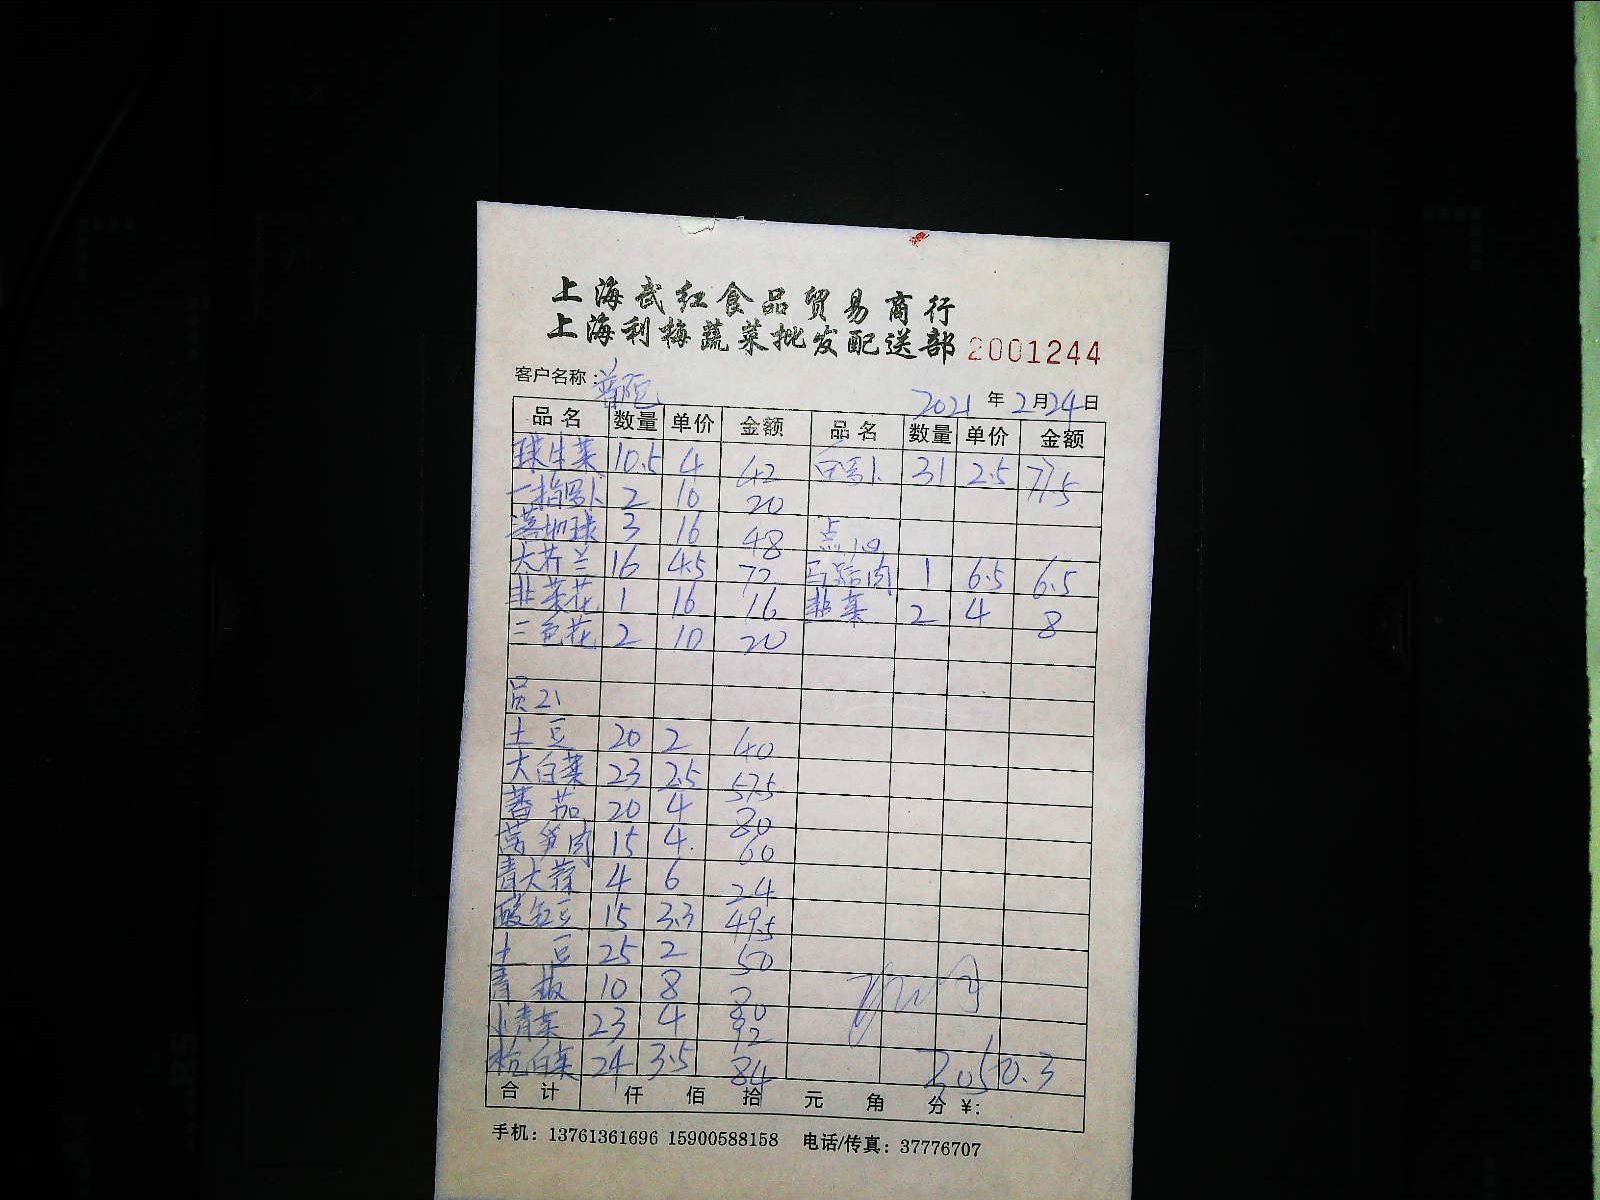 上海武红食品贸易商行
上海利梅蔬菜批发配送部 2001244
客户名称：普陀
2021 年 2 月 24 日
品名 数量 单价 金额 品名 数量 单价 金额
球生菜 10.5 4 42 白萝卜 31 2.5 77.5
一指萝卜 2 10 20
3 16 48 点心
大芥兰 16 4.5 72 马蹄肉 1 6.5 6.5
韭菜花 1 16 16 韭菜 2 4 8
三色花 2 10 20
员工
土豆 20 2 40
大白菜 23 2.5 57.5
蕃茄 20 4 80
莴笋肉 15 4 60
青大蒜 4 6 24
酸豇豆 15 3.3 49.5
土豆 25 2 50
青椒 10 8 80
小青菜 23 4 92
杭白菜 24 3.5 84
合计 仟 佰 拾 元 角 分 ¥:
手机：13761361696 15900588158 电话/传真：37776707